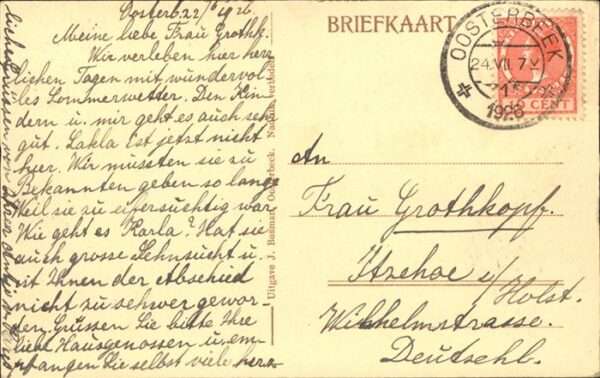 Oosterb. 22/6 1926
Meine liebe Frau Grothk.
Wir verleben hier herz
lichen Tagen mit wundervol
les Sommerwetter. Den Kin
dern u. mir geht es auch sehr
gut. Lakla ist jetzt nicht
hier. Wir mussten sie zu
Bekannten geben so lange
Weil sie zu eifersuchtig war
Wie geht es Karla? Hat sie
auch grosse Sehnsucht u.
ist Ihnen der Abschied
nicht zu schwer gewor-
den. Grüssen Sie bitte Ihre
liebe Hausgenossen u. em-
pfangen Sie selbst viele herz
lichen Grüssen von
Uitgave J. Oosterbeek. Nadruk verboden
BRIEFKAART
OOSTERBEEK
24.VII. 7 V
1926
CENT
An
Frau Grothkopf.
Itzehoe i/
Holst.
Wilhelmstrasse.
Deutschl.